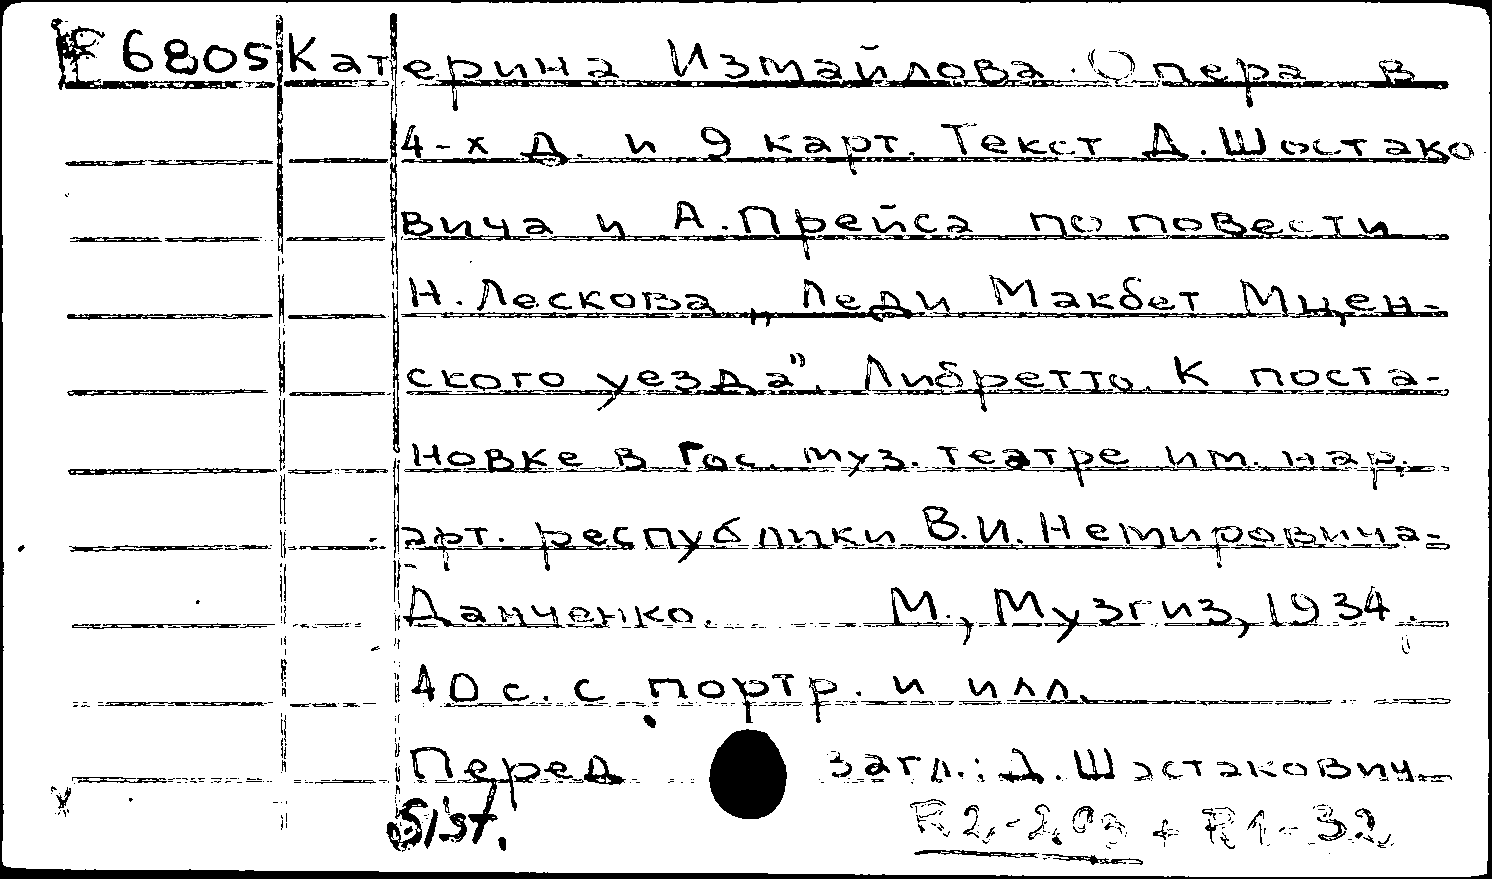 F 6805 Катерина Измайлова. Опера в
4-х д. и 9 карт. Текст Д. Шостако
вича и А. Прейса по повести
Н. Лескова „Леди Макбет Мцен-
ского уезда". Либретто. К поста-
новке в Гос. муз. театре им. нар.
арт. республики В.И. Немировича-
Данченко. М., Музгиз, 1934.
40 с. с портр. и илл.
Перед загл.: Д. Шостакович
x Sist. R2-2,03 + R1-32